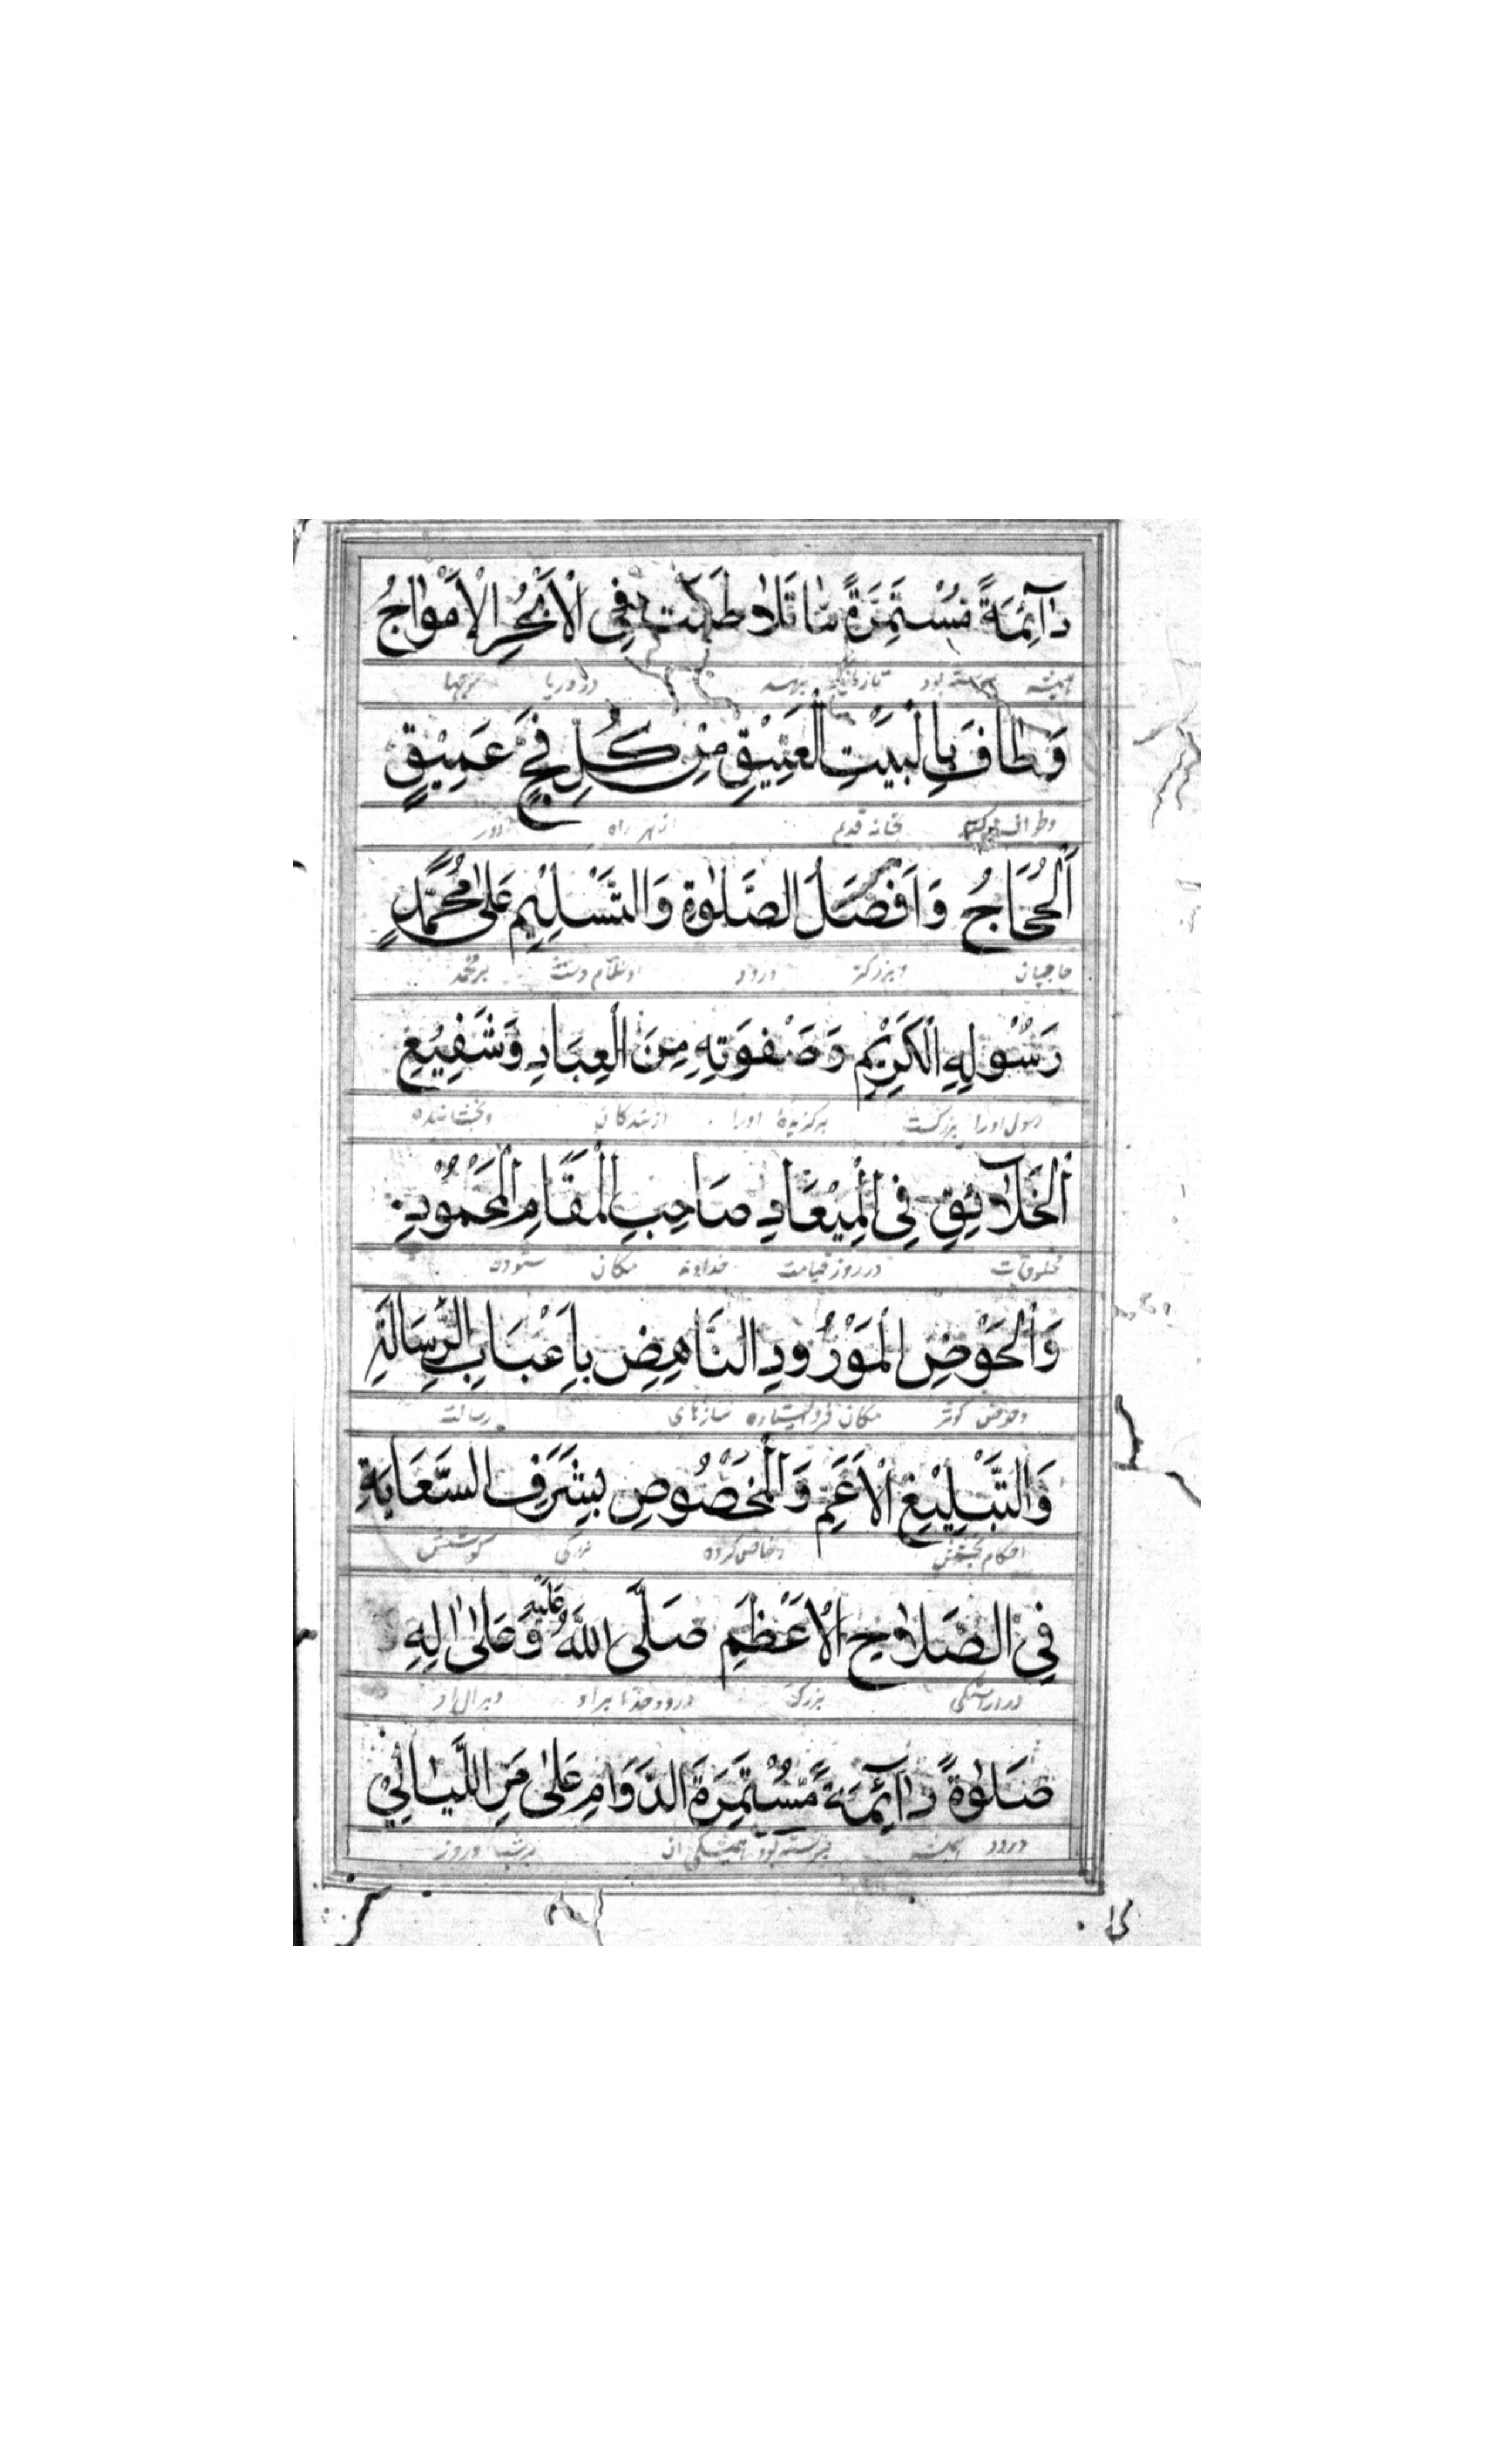 دٰآئِمَةً مُسْتَمِرَّةً مٰا تَلٰاطَمَت فِی الْاَبْحُرِ الْاَمْوٰاجُ
همیشه بود در دریا موجها
وَطٰافَ بِالْبَيْتِ الْعَتِيْقِ مِنْ كُلِّ فَجٍّ عَمِيْقٍ
بخانه قدیم از هر راه دور
اَلْحُجَّاجُ وَاَفْضَلُ الصَّلٰوةِ وَالتَّسْلِيْمِ عَلٰى مُحَمَّدٍ
حاجیان وبزرکتر درود بر محمد
رَسُوْلِهِ الْكَرِيْمِ وَصَفْوَتِهِ مِنَ الْعِبَادِ وَشَفِيْعِ
رسول اورا بزرکست برکزیدهٔ اورا از بندکان وبخشاننده
اَلْخَلٰآئِقِ فِی الْمِيْعَادِ صَاحِبِ الْمَقَامِ الْمَحْمُوْدِ
مخلوقات در روز قیامت خداوند مکان ستوده
وَالْحَوْضِ الْمَوْرُوْدِ النَّاهِضِ بِاَعْبَاءِ الرِّسَالَةِ
وحوض کوثر مکان فرو ایستاده رسالت
وَالتَّبْلِيْغِ الْاَعَمِّ وَالْمَخْصُوْصِ بِشَرَفِ السَّعَايَةِ
احکام وخاص کرده بزرکی کوشش
فِی الصَّلٰاحِ الْاَعْظَمِ صَلَّى اللّٰهُ عَلَيْهِ وَعَلٰى اٰلِهِ
در اراستکی بزرک درود خدا بر او وبر ال او
صَلٰوةً دٰآئِمَةً مُّسْتَمِرَّةَ الدَّوَامِ عَلٰى مَرِّ اللَّيٰالِیْ
درود همیشه پیوسته بود همیشکی ان بر شب وروز